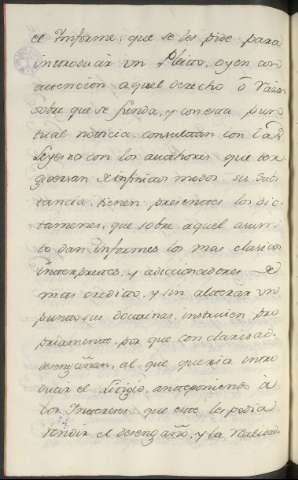 el Informe, que se les pide para
introducir un Pleito, oyen con
attencion aquel derecho ò razon
sobre que se funda, y con esta pun-
tual noticia consultan con las
Leyes ò con los authores que
de infinitos modos su subs-
tancia, tienen presentes los dic-
tamenes, que sobre aquel asun-
to dan informes los mas clasicos
interpretes, y addiccionadores de
mas credito, y sin alterar un
punto sus doctrinas, instruien pro-
priamente, para que con claridad
desengañen, al que queria intro-
ducir el litigio, anteponiendo à
los Intereses que esto les podia
rendir el desengaño, y la realidad